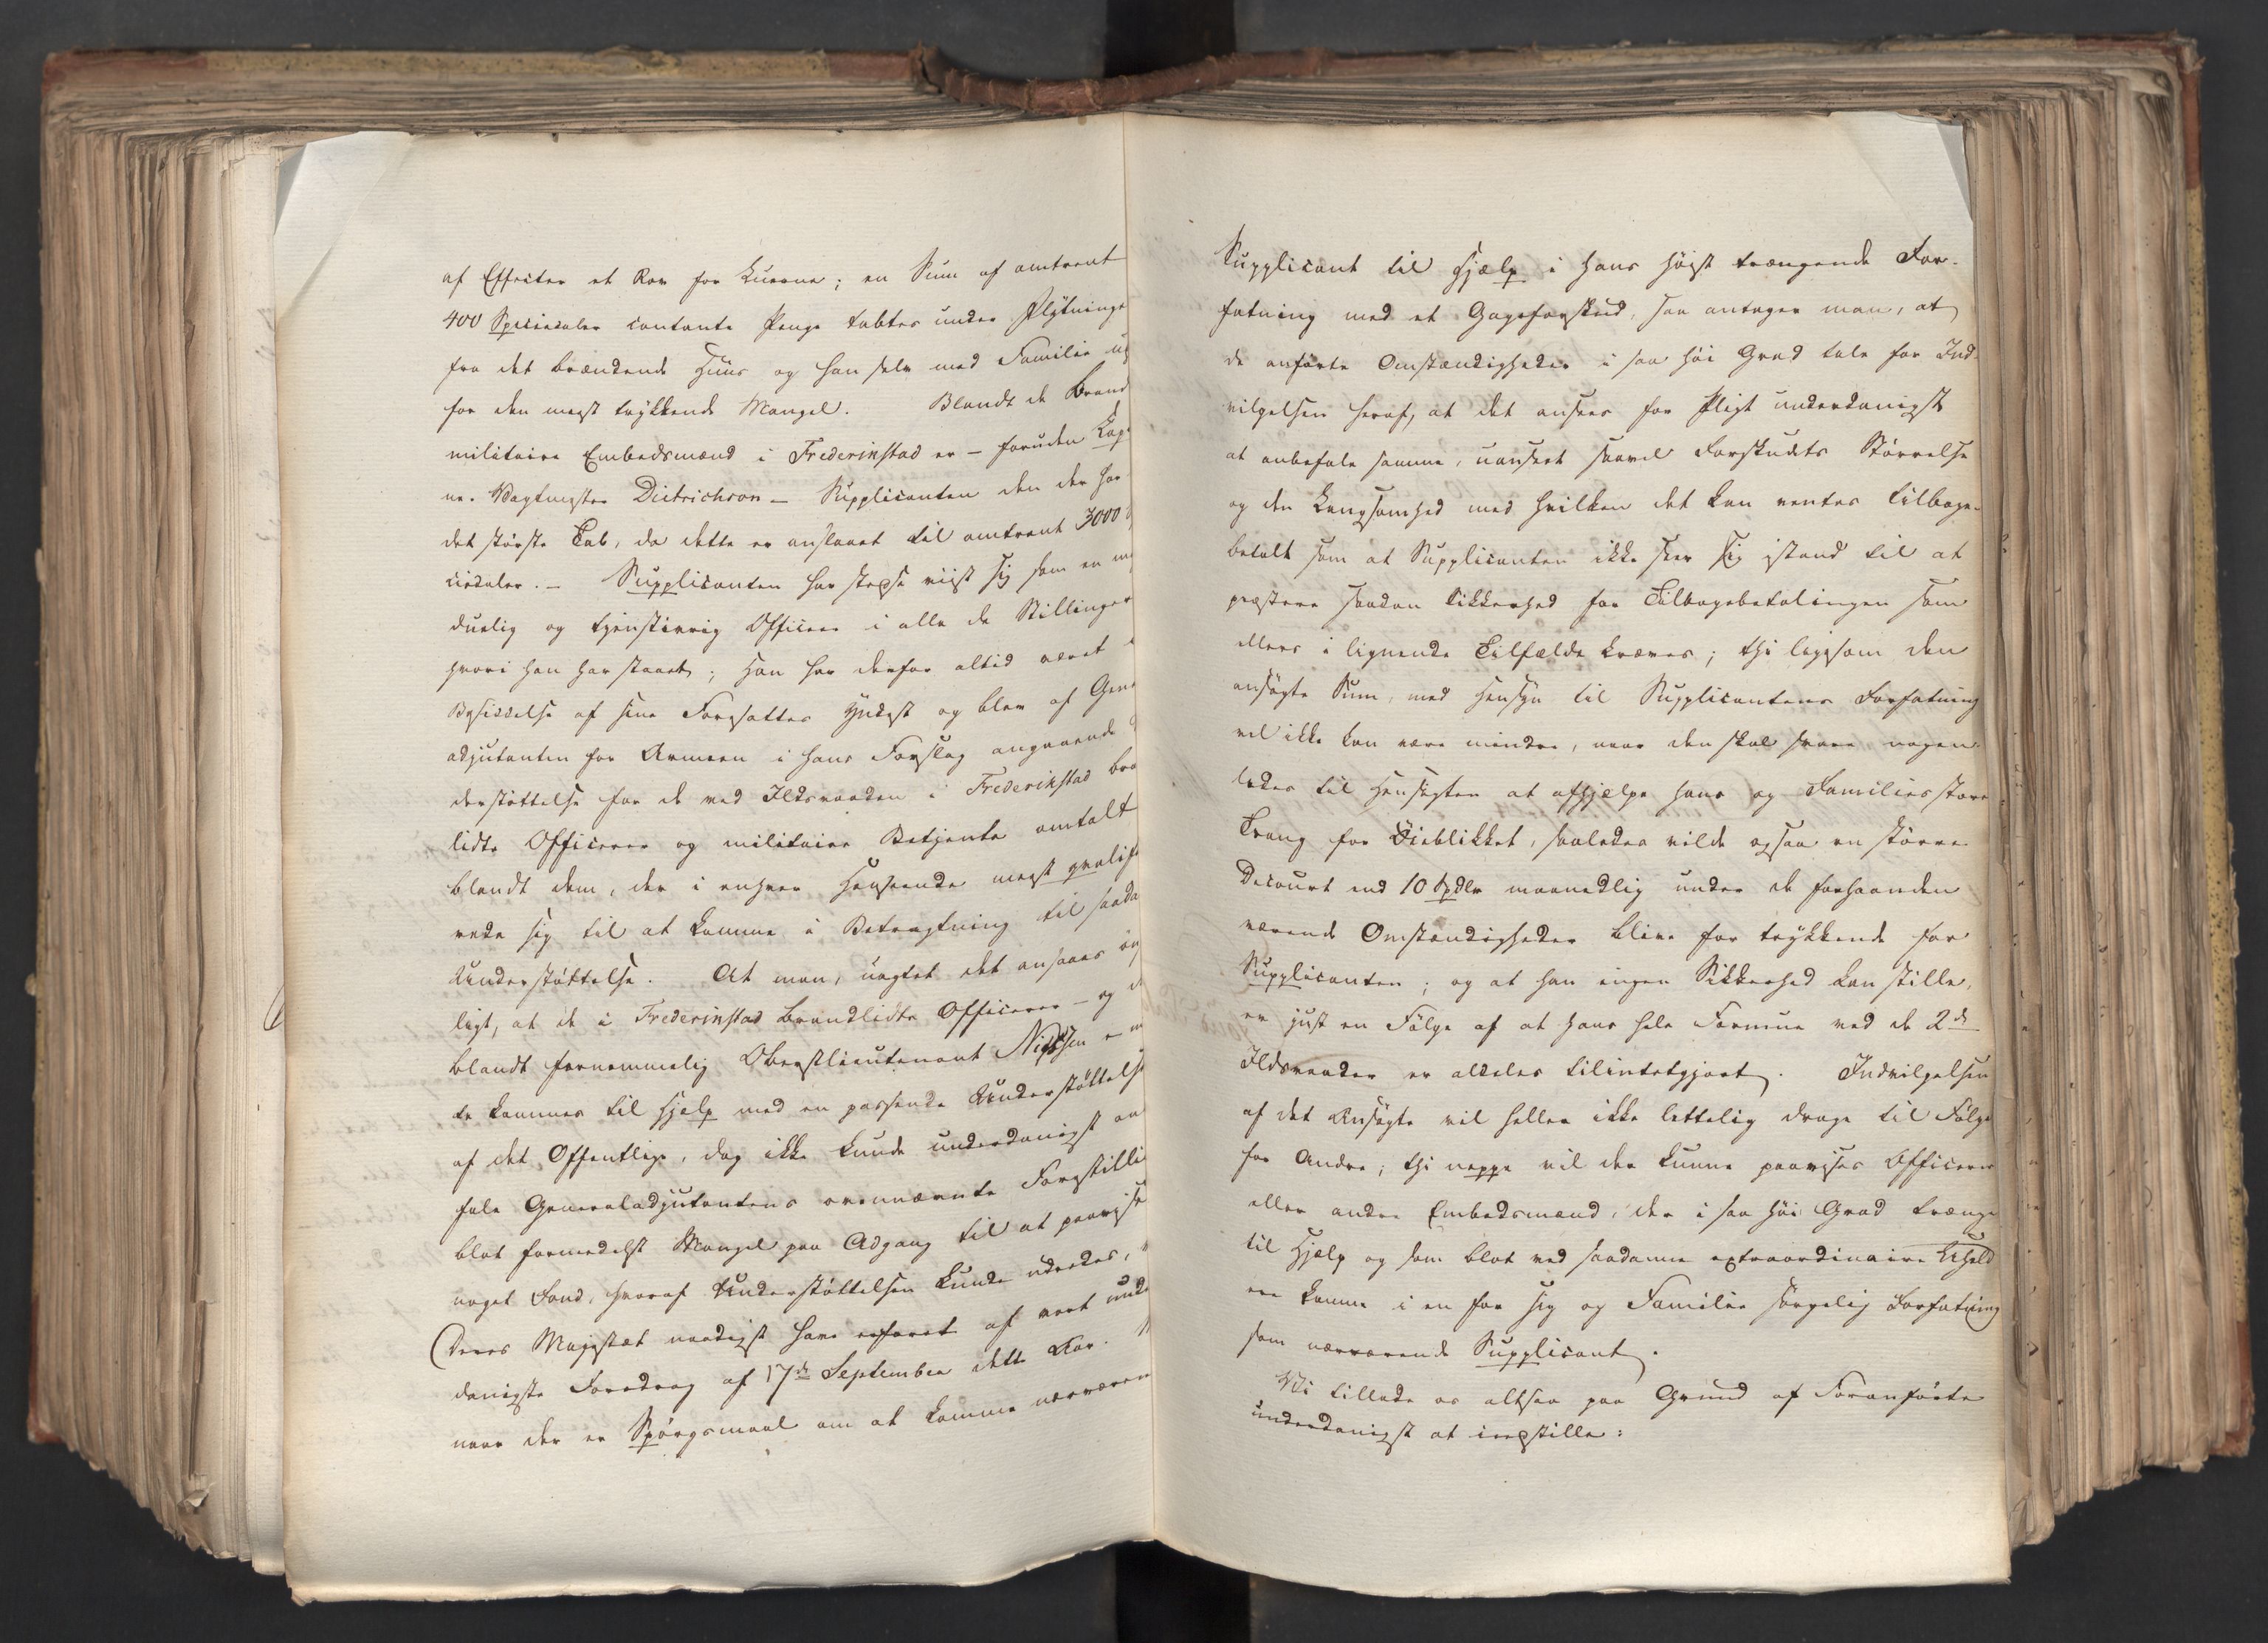 af Effecter et Rov for Luerne; en Sum af omtrent
400 Speciedaler contante Penge tabtes under Flytninge
fra det brændende Huus og han selv med Familie ud
for den meest trykkende Mangel. Blandt de Brand
militaire Embedsmænd i Frederikstad er - foruden Cap
nr. Vagtmester Dietrichson - Supplicanten den der har
det største Tab, da dette er anslaaet til omtrent 3000
ciedaler. - Supplicanten har stedse viist sig som en
duelig og tjenstivrig Officeer i alle de Stillinger
hvori han har staaet; han har derfor altid været i
Besiddelse af sine Foresattes Yndest og blev af Gene
adjutanten for Armeen i hans Forslag angaaende
derstøttelse for de ved Ildsvaaden i Frederikstad bra
lidte Officerer og militaire Betjente omtalt
blandt dem, der i enhver Henseende meest qvalifi
cerede sig til at komme i Betragtning til saada
Understøttelse. At man, uagtet det ansaaes øn
ligt, at de i Frederikstad brandlidte Officerer - og i
blandt fornemmelig Oberstlieutenant Nissen -
te kommes til Hjelp med en passende Understøttelse
af det Offentlige, dog ikke kunde underdanigst an
fale Generaladjutantens ovennævnte Forestilli
blot formedelst Mangel paa Adgang til at paavise
noget Fond, hvoraf Understøttelsen kunde udredes,
Deres Majestæt naadigst have erfaret af vort unde
danigste Foredrag af 17de September dette Aar.
naar der er Spørgsmaal om at komme nærværen
Supplicant til Hjælp i hans høist trængende For-
fatning med et Gageforskud, saa antager man, at
de anførte Omstændigheder i saa høi Grad tale for Ind-
vilgelsen heraf, at det ansees for Pligt underdanigst
at anbefale samme, uanseet saavel Forskudets Størrelse
og den Langsomhed med hvilken det kan ventes tilbage-
betalt som at Supplicanten ikke seer sig istand til at
præstere saadan Sikkerhed for Tilbagebetalingen som
ellers i lignende Tilfælde kræves; thi ligesom den
ansøgte Sum, med Hensyn til Supplicantens Forfatning
vel ikke kan være mindre, naar den skal svare nogen-
ledes til Hensigten at afhjelpe hans og Families store
Trang for Øieblikket, saaledes vilde ogsaa en større
Decourt end 10 Spdlr maanedlig under de forhaanden
værende Omstændigheder blive for trykkende for
Supplicanten; og at han ingen Sikkerhed kan stille,
er just en Følge af at hans hele Formue ved de 2de
Ildsvaader er aldeles tilintetgjort. Indvilgelsen
af det Ansøgte vil heller ikke lettelig drage til Følge
for Andre; thi neppe vil der kunne paavises Officerer
eller andre Embedsmænd, der i saa høi Grad trænge
til Hjelp og som blot ved saadanne extraordinaire Uheld
ere komne i en for sig og Familie sørgelig Forfatning
som nærværende Supplicant.
Vi tillade os altsaa paa Grund af Foranførte
underdanigst at indstille: